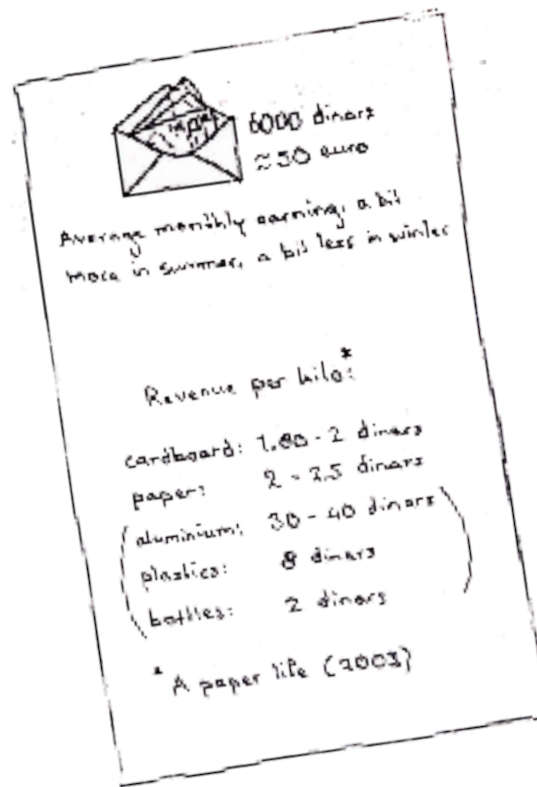 6000 dinars
≈ 50 euro
Average monthly earning, a bit
more in summer, a bit less in winter
Revenue per kilo*:
cardboard: 1.80 - 2 dinars
paper: 2 - 2.5 dinars
(aluminium: 30 - 40 dinars)
plastics: 8 dinars
bottles: 2 dinars
* A paper life (2003)